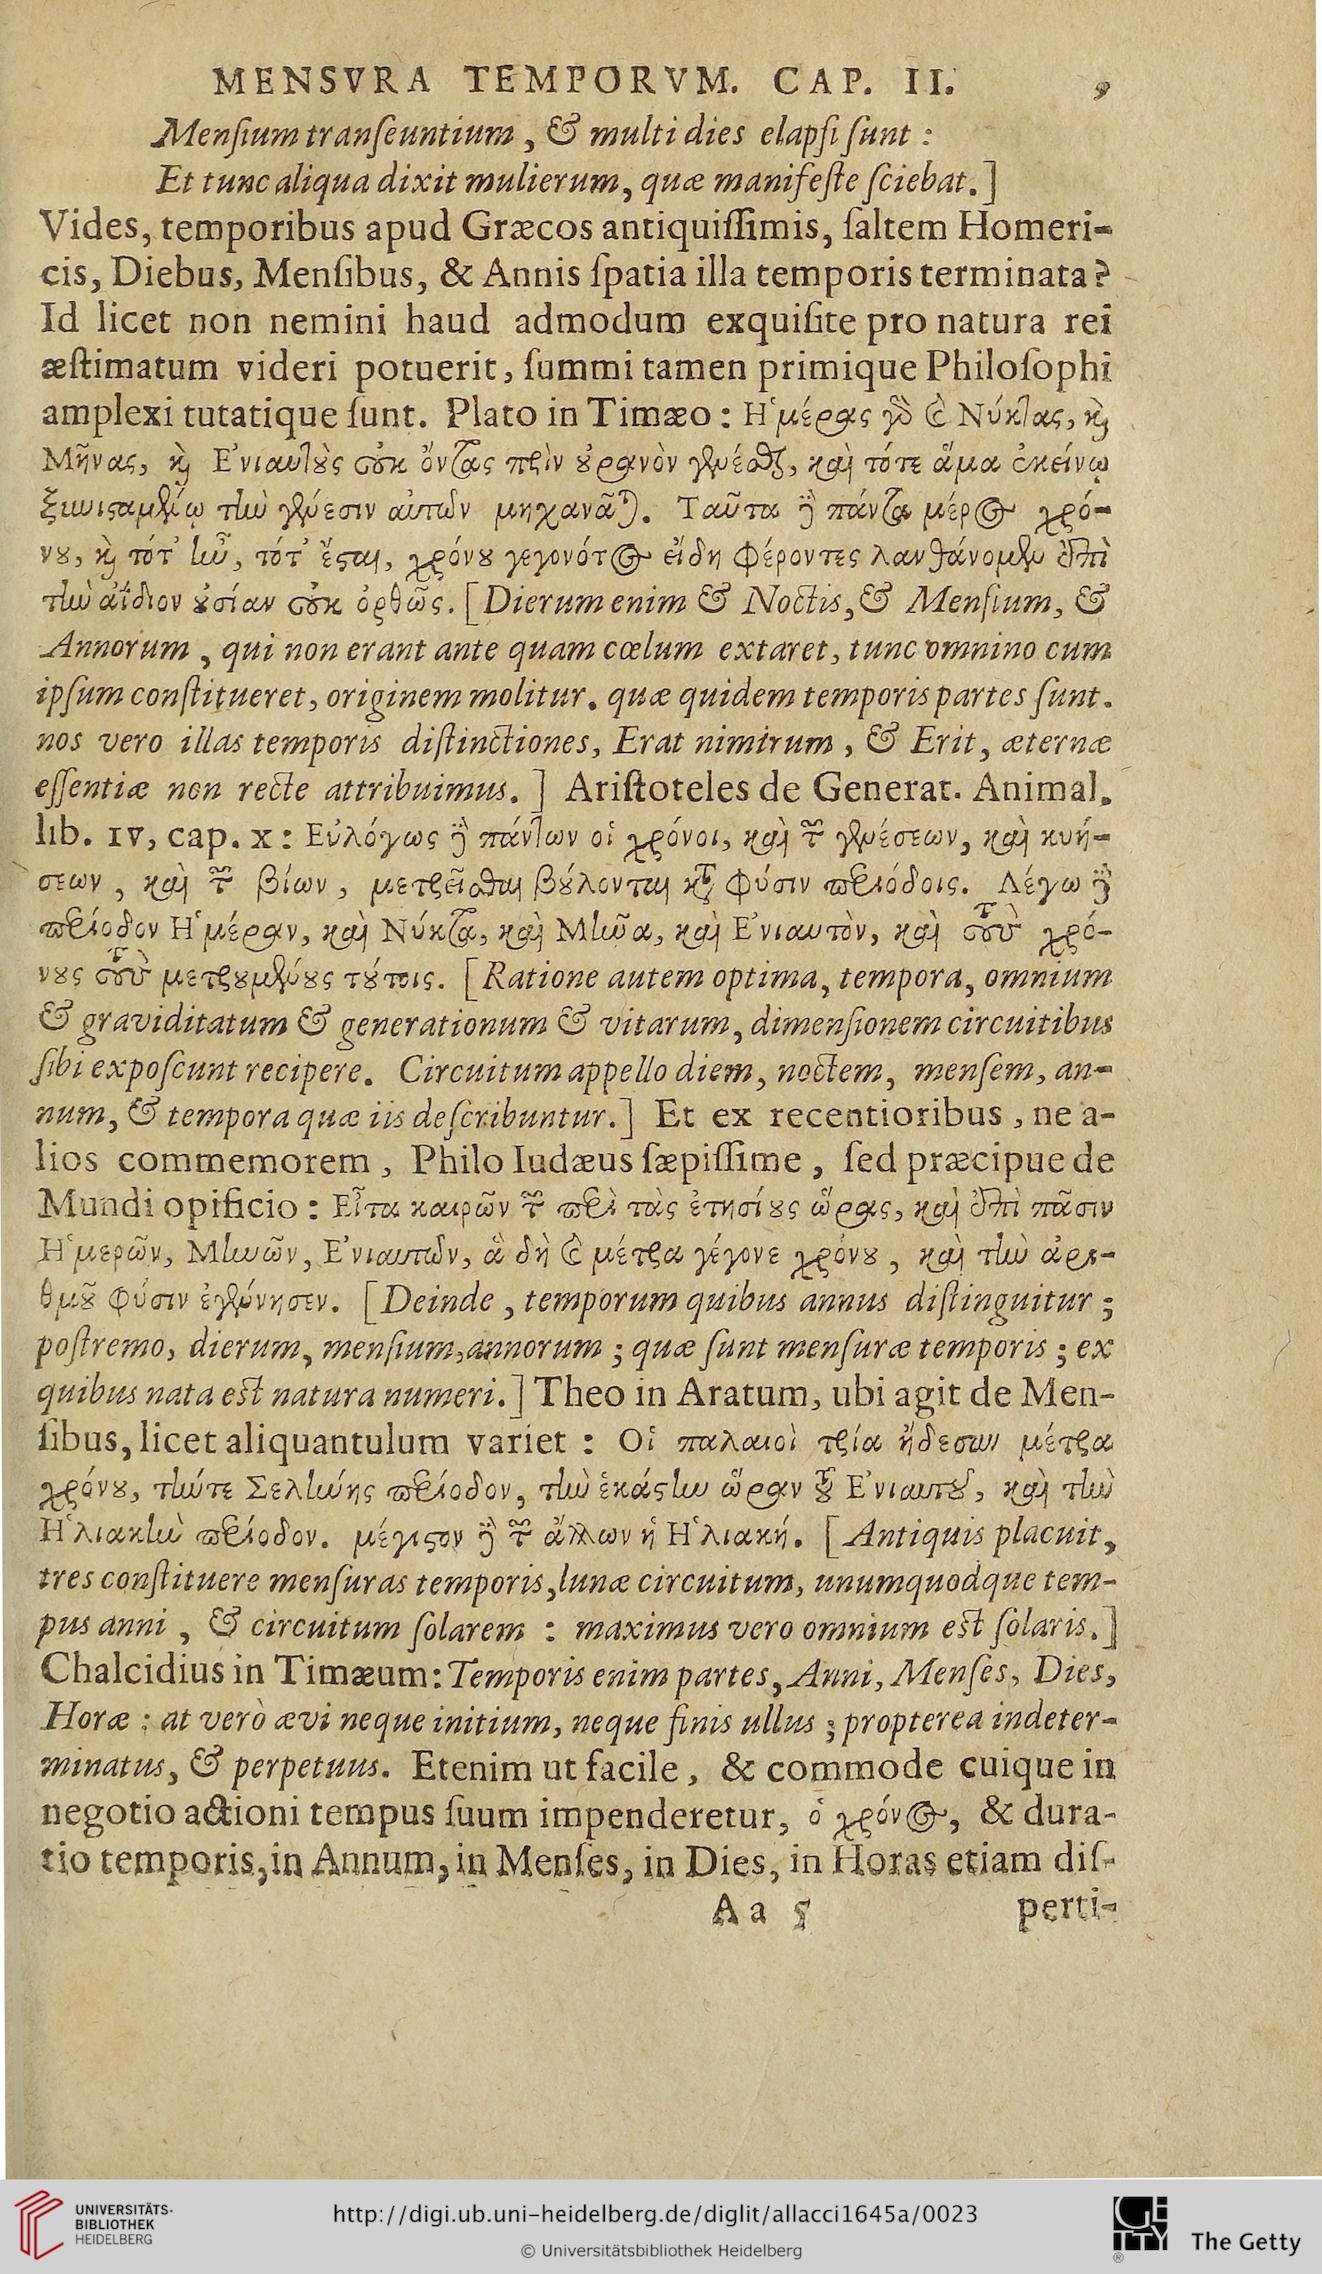 MENSVRA TEMPORVM. CAP. II. 9
Menſium tranſeuntium, & multi dies elapſi ſunt:
Et tunc aliqua dixit mulierum, quæ manifeſte ſciebat.]
Vides, temporibus apud Græcos antiquiſſimis, ſaltem Homeri-
cis, Diebus, Menſibus, & Annis ſpatia illa temporis terminata?
Id licet non nemini haud admodum exquiſite pro natura rei
æſtimatum videri potuerit, ſummi tamen primique Philoſophi
amplexi tutatique ſunt. Plato in Timæo: Ἡμέρας γὰρ καὶ Νύκτας, καὶ
Μῆνας, καὶ Ἐνιαυτοὺς οὐκ ὄντας πρὶν οὐρανὸν γενέσθαι, καὶ τότε ἅμα ἐκείνῳ
ξυνισταμένῳ τὴν γένεσιν αὐτῶν μηχανᾶται. Ταῦτα δὲ πάντα μέρος χρό-
νου, καὶ τότ' ἦν, τότ' ἔσται, χρόνου γεγονότος εἴδη φέροντες λανθάνομεν ἐπὶ
τὴν ἀΐδιον οὐσίαν οὐκ ὀρθῶς. [Dierum enim & Noctis, & Menſium, &
Annorum, qui non erant ante quam cœlum extaret, tunc omnino cum
ipſum conſtitueret, originem molitur. quæ quidem temporis partes ſunt.
nos vero illas temporis diſtinctiones, Erat nimirum, & Erit, æternæ
eſſentiæ non recte attribuimus.] Ariſtoteles de Generat. Animal.
lib. IV, cap. X: Εὐλόγως δὲ πάντων οἱ χρόνοι, καὶ τῶν γενέσεων, καὶ κυή-
σεων, καὶ τῶν βίων, μετρεῖσθαι βούλονται κατὰ φύσιν περιόδοις. Λέγω δὲ
περίοδον Ἡμέραν, καὶ Νύκτα, καὶ Μῆνα, καὶ Ἐνιαυτὸν, καὶ τοὺς χρό-
νους τοὺς μετρουμένους τούτοις. [Ratione autem optima, tempora, omnium
& graviditatum & generationum & vitarum, dimenſionem circuitibus
ſibi expoſcunt recipere. Circuitum appello diem, noctem, menſem, an-
num, & tempora quæ iis deſcribuntur.] Et ex recentioribus, ne a-
lios commemorem, Philo Iudæus ſæpiſſime, ſed præcipue de
Mundi opificio: Εἶτα καιρῶν τῶν περὶ τὰς ἐτησίους ὥρας, καὶ ἐπὶ πᾶσιν
Ἡμερῶν, Μηνῶν, Ἐνιαυτῶν, ἃ δὴ καὶ μέτρα γέγονε χρόνου, καὶ τὴν ἀρι-
θμοῦ φύσιν ἐγέννησεν. [Deinde, temporum quibus annus diſtinguitur;
poſtremo, dierum, menſium, annorum; quæ ſunt menſuræ temporis; ex
quibus nata eſt natura numeri.] Theo in Aratum, ubi agit de Men-
ſibus, licet aliquantulum variet: Οἱ παλαιοὶ τρία ᾔδεσαν μέτρα
χρόνου, τήντε Σελήνης περίοδον, τὴν ἑκάστην ὥραν τοῦ Ἐνιαυτοῦ, καὶ τὴν
Ἡλιακὴν περίοδον. μέγιστον δὲ τῶν ἄλλων ἡ Ἡλιακή. [Antiquis placuit,
tres conſtituere menſuras temporis, lunæ circuitum, unumquodque tem-
pus anni, & circuitum ſolarem: maximus vero omnium eſt ſolaris.]
Chalcidius in Timæum: Temporis enim partes, Anni, Menſes, Dies,
Horæ: at verò ævi neque initium, neque finis ullus; propterea indeter-
minatus, & perpetuus. Etenim ut facile, & commode cuique in
negotio actioni tempus ſuum impenderetur, ὁ χρόνος, & dura-
tio temporis, in Annum, in Menſes, in Dies, in Horas etiam diſ-
Aa 5 perti-
UNIVERSITÄTS-
BIBLIOTHEK
HEIDELBERG
http://digi.ub.uni-heidelberg.de/diglit/allacci1645a/0023
© Universitätsbibliothek Heidelberg
GETTY
®
The Getty